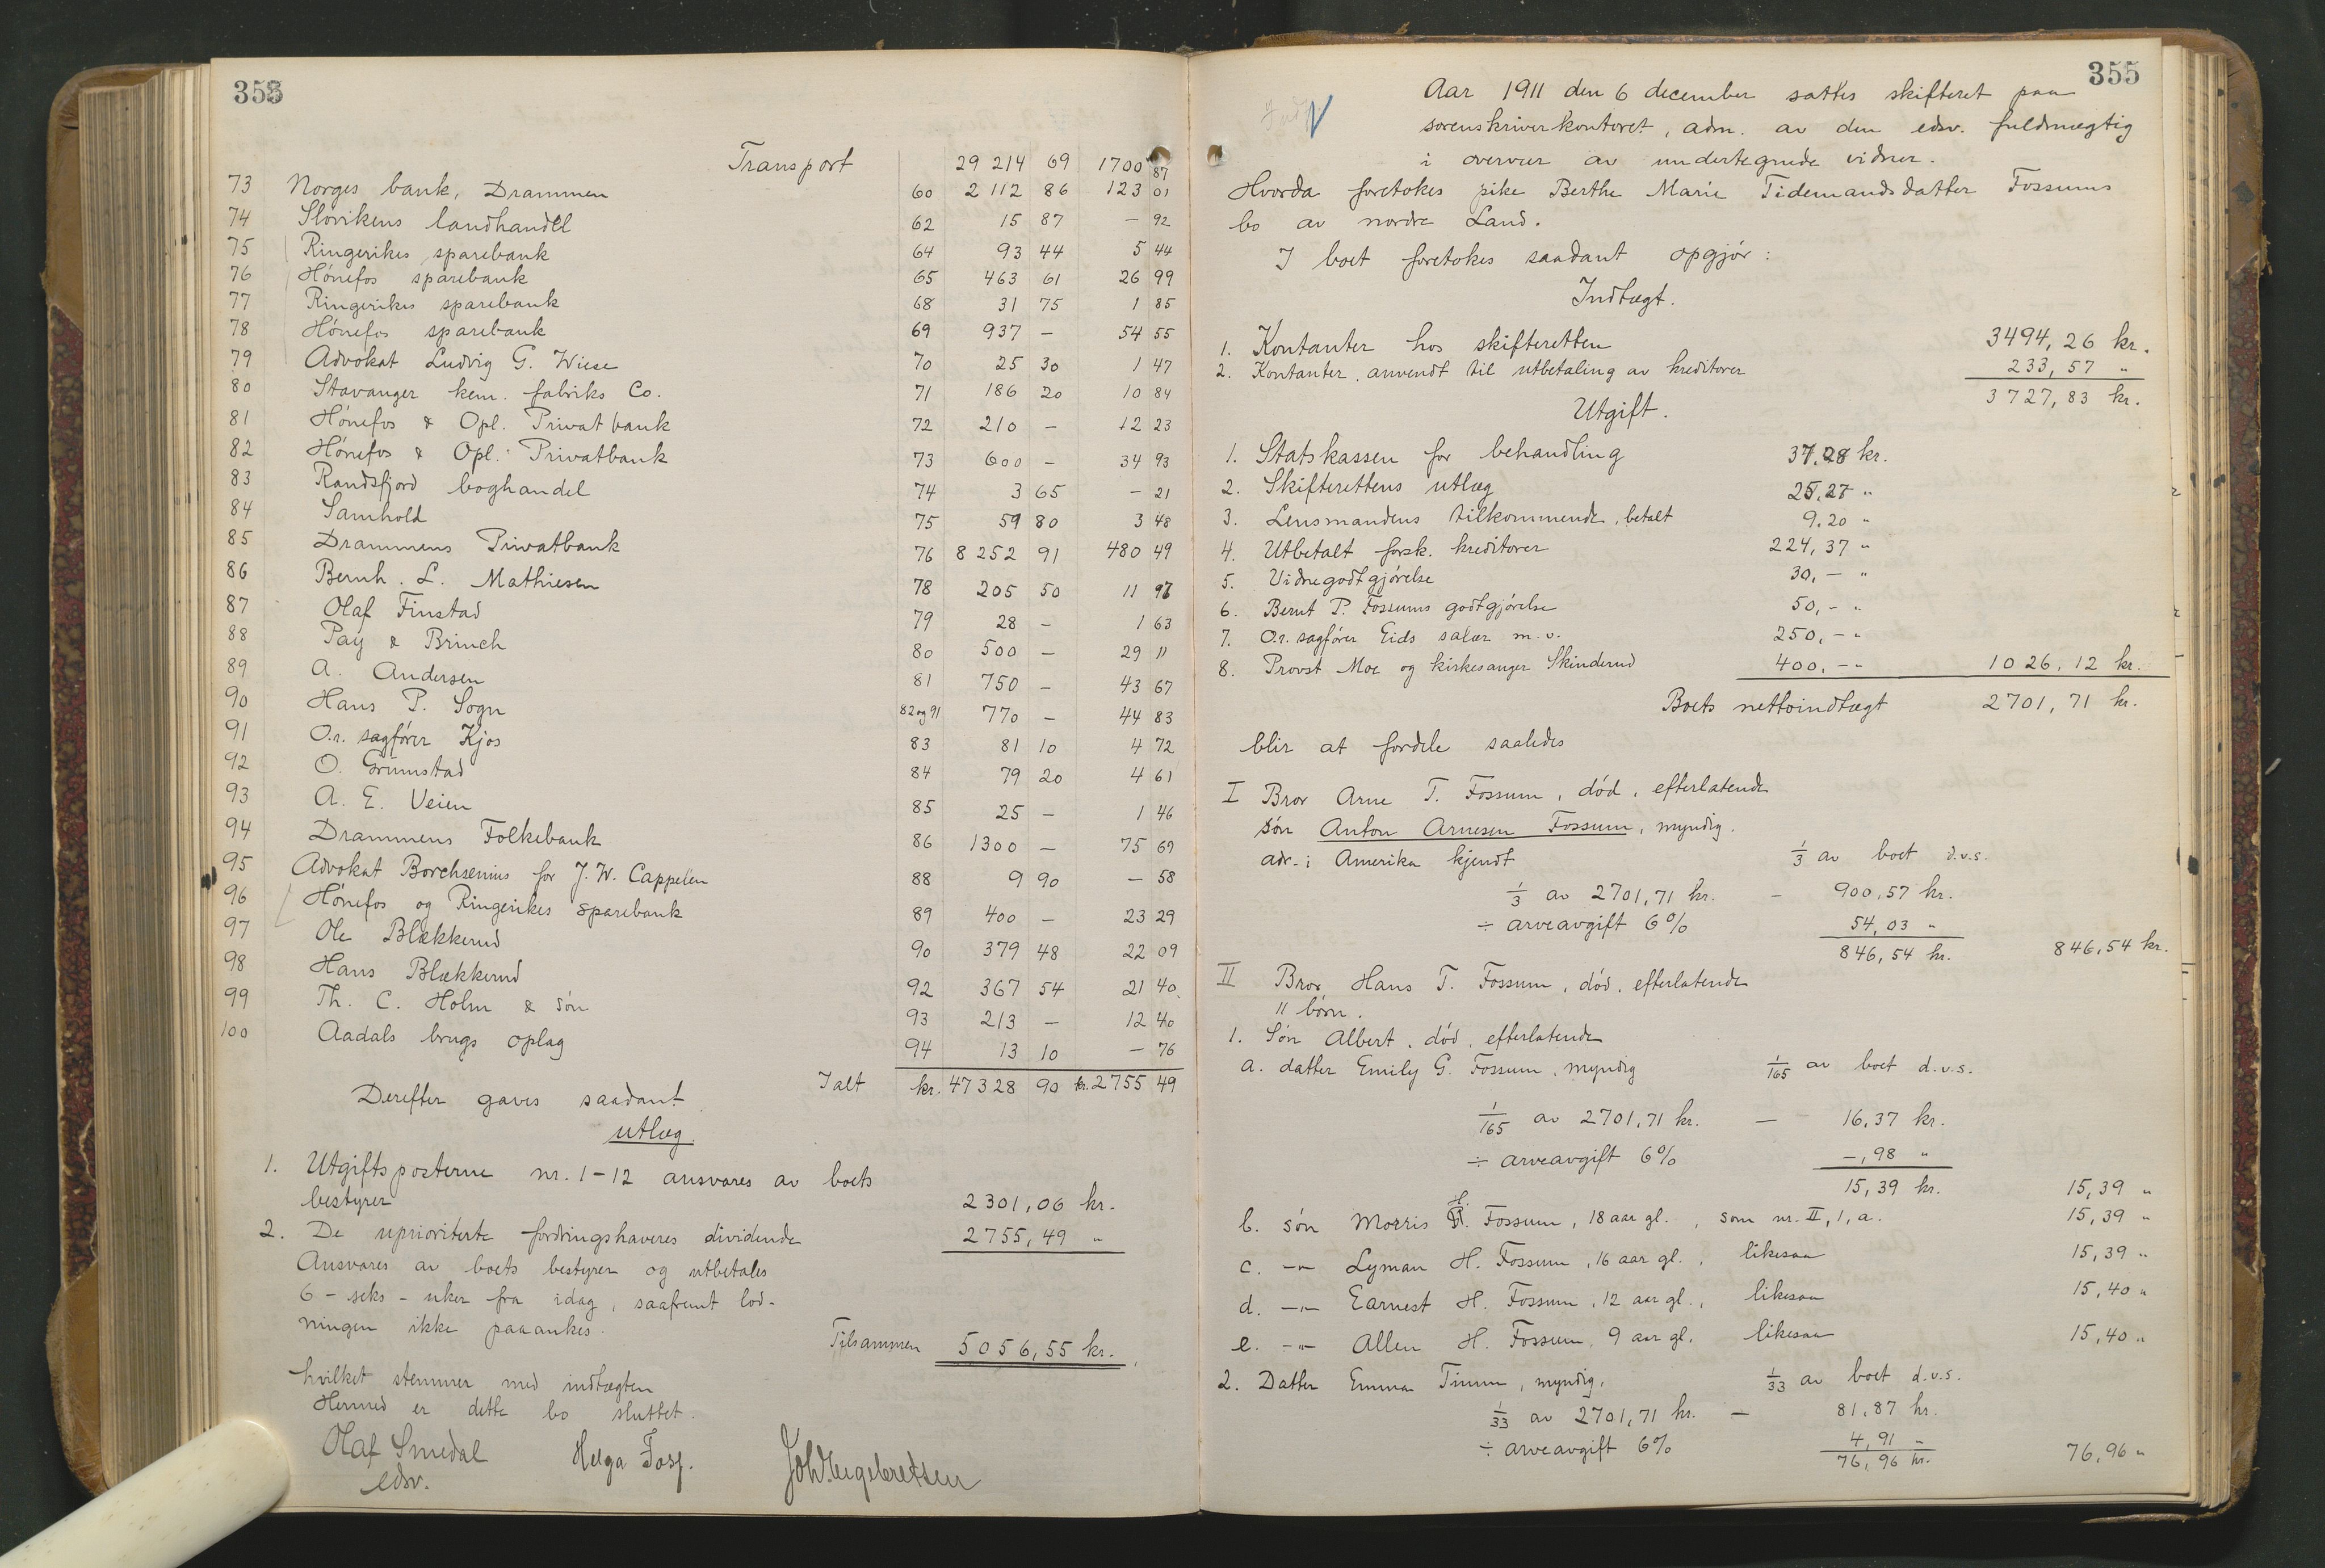 353
Transport 29 214 69 1700 87
73 Norges bank, Drammen 60 2 112 86 123 01
74 Slovikens landhandel 62 15 87 - 92
75 Ringerikes sparebank 64 93 44 5 44
76 Hønefos sparebank 65 463 61 26 99
77 Ringerikes sparebank 68 31 75 1 85
78 Hønefos sparebank 69 937 - 54 55
79 Advokat Ludvig G. Wiese 70 25 30 1 47
80 Stavanger kem. fabriks Co. 71 186 20 10 84
81 Hønefos & Opl. Privatbank 72 210 - 12 23
82 Hønefos & Opl. Privatbank 73 600 - 34 93
83 Randsfjord boghandel 74 3 65 - 21
84 Samhold 75 59 80 3 48
85 Drammens Privatbank 76 8 252 91 480 49
86 Bernh. L. Mathiesen 78 205 50 11 97
87 Olaf Finstad 79 28 - 1 63
88 Pay & Brinch 80 500 - 29 11
89 A. Andersen 81 750 - 43 67
90 Hans P. Sogn 82 og 91 770 - 44 83
91 O.r. sagfører Kjos 83 81 10 4 72
92 O. Grimstad 84 79 20 4 61
93 A. E. Veien 85 25 - 1 46
94 Drammens Folkebank 86 1300 - 75 69
95 Advokat Borchsenius for J. W. Cappelen 88 9 90 - 58
96 Hønefos og Ringerikes sparebank 89 400 - 23 29
97 Ole Blækkerud 90 379 48 22 09
98 Hans Blækkerud 92 367 54 21 40
99 Th. C. Holm & søn 93 213 - 12 40
100 Aadals brugs oplag 94 13 10 - 76
Ialt kr. 47 328 90 kr. 2755 49
Derefter gaves saadant
utlæg.
1. Utgiftsposterne nr. 1-12 ansvares av boets
bestyrer 2301,06 kr.
2. De uprioriterte fordringshaveres dividende 2755,49 "
Ansvares av boets bestyrer og utbetales
6 - seks - uker fra idag, saafremt lod-
ningen ikke paaankes.
Tilsammen 5056,55 kr.
hvilket stemmer med indtægten
Hermed er dette bo sluttet.
Olaf Smedal Helga Fosj. Joh. Engebretsen
edsv.
355
Aar 1911 den 6 december sattes skifteret paa
sorenskriverkontoret, adm. av den edsv. fuldmægtig
i overvær av undertegnede vidner.
Hvorda foretokes pike Berthe Marie Tidemandsdatter Fossums
bo av nordre Land.
I boet foretokes saadant opgjør:
Indtægt.
1. Kontanter hos skifteretten 3494,26 kr.
2. Kontanter anvendt til utbetaling av kreditorer 233,57 "
3727,83 kr.
Utgift.
1. Statskassen for behandling 37.28 kr.
2. Skifterettens utlæg 25.27 "
3. Lensmandens tilkommende, betalt 9.20 "
4. Utbetalt forsk. kreditorer 224,37 "
5. Vidnegodtgjørelse 30,- "
6. Bernt P. Fossums godtgjørelse 50,- "
7. O.r. sagfører Eids salær m.v. 250,- "
8. Provst Moe og kirkesanger Skinderud 400,- " 1026,12 kr.
Boets nettoindtægt 2701,71 kr.
blir at fordele saaledes
I Bror Arne T. Fossum, død, efterlatende
søn Anton Arnesen Fossum, myndig.
adr. i Amerika kjendt 1/3 av boet d.v.s.
1/3 av 2701,71 kr. - 900,57 kr.
÷ arveavgift 6% 54,03 "
846,54 kr. 846,54 kr.
II Bror Hans T. Fossum, død, efterlatende
11 børn.
1. Søn Albert, død, efterlatende
a. datter Emily G. Fossum, myndig 1/165 av boet d.v.s.
1/165 av 2701,71 kr. - 16,37 kr.
÷ arveavgift 6% -,98 "
15,39 kr. 15,39 "
b. søn Morris H. Fossum, 18 aar gl., som nr. II, 1, a. 15,39 "
c. -"- Lyman H. Fossum, 16 aar gl., likesaa 15,39 "
d. -"- Earnest H. Fossum, 12 aar gl., likesaa 15,40 "
e. -"- Allen H. Fossum, 9 aar gl. likesaa 15,40 "
2. Datter Emma Timm, myndig, 1/33 av boet d.v.s.
1/33 av 2701,71 kr. - 81,87 kr.
÷ arveavgift 6% 4,91 "
76,96 kr. 76,96 "